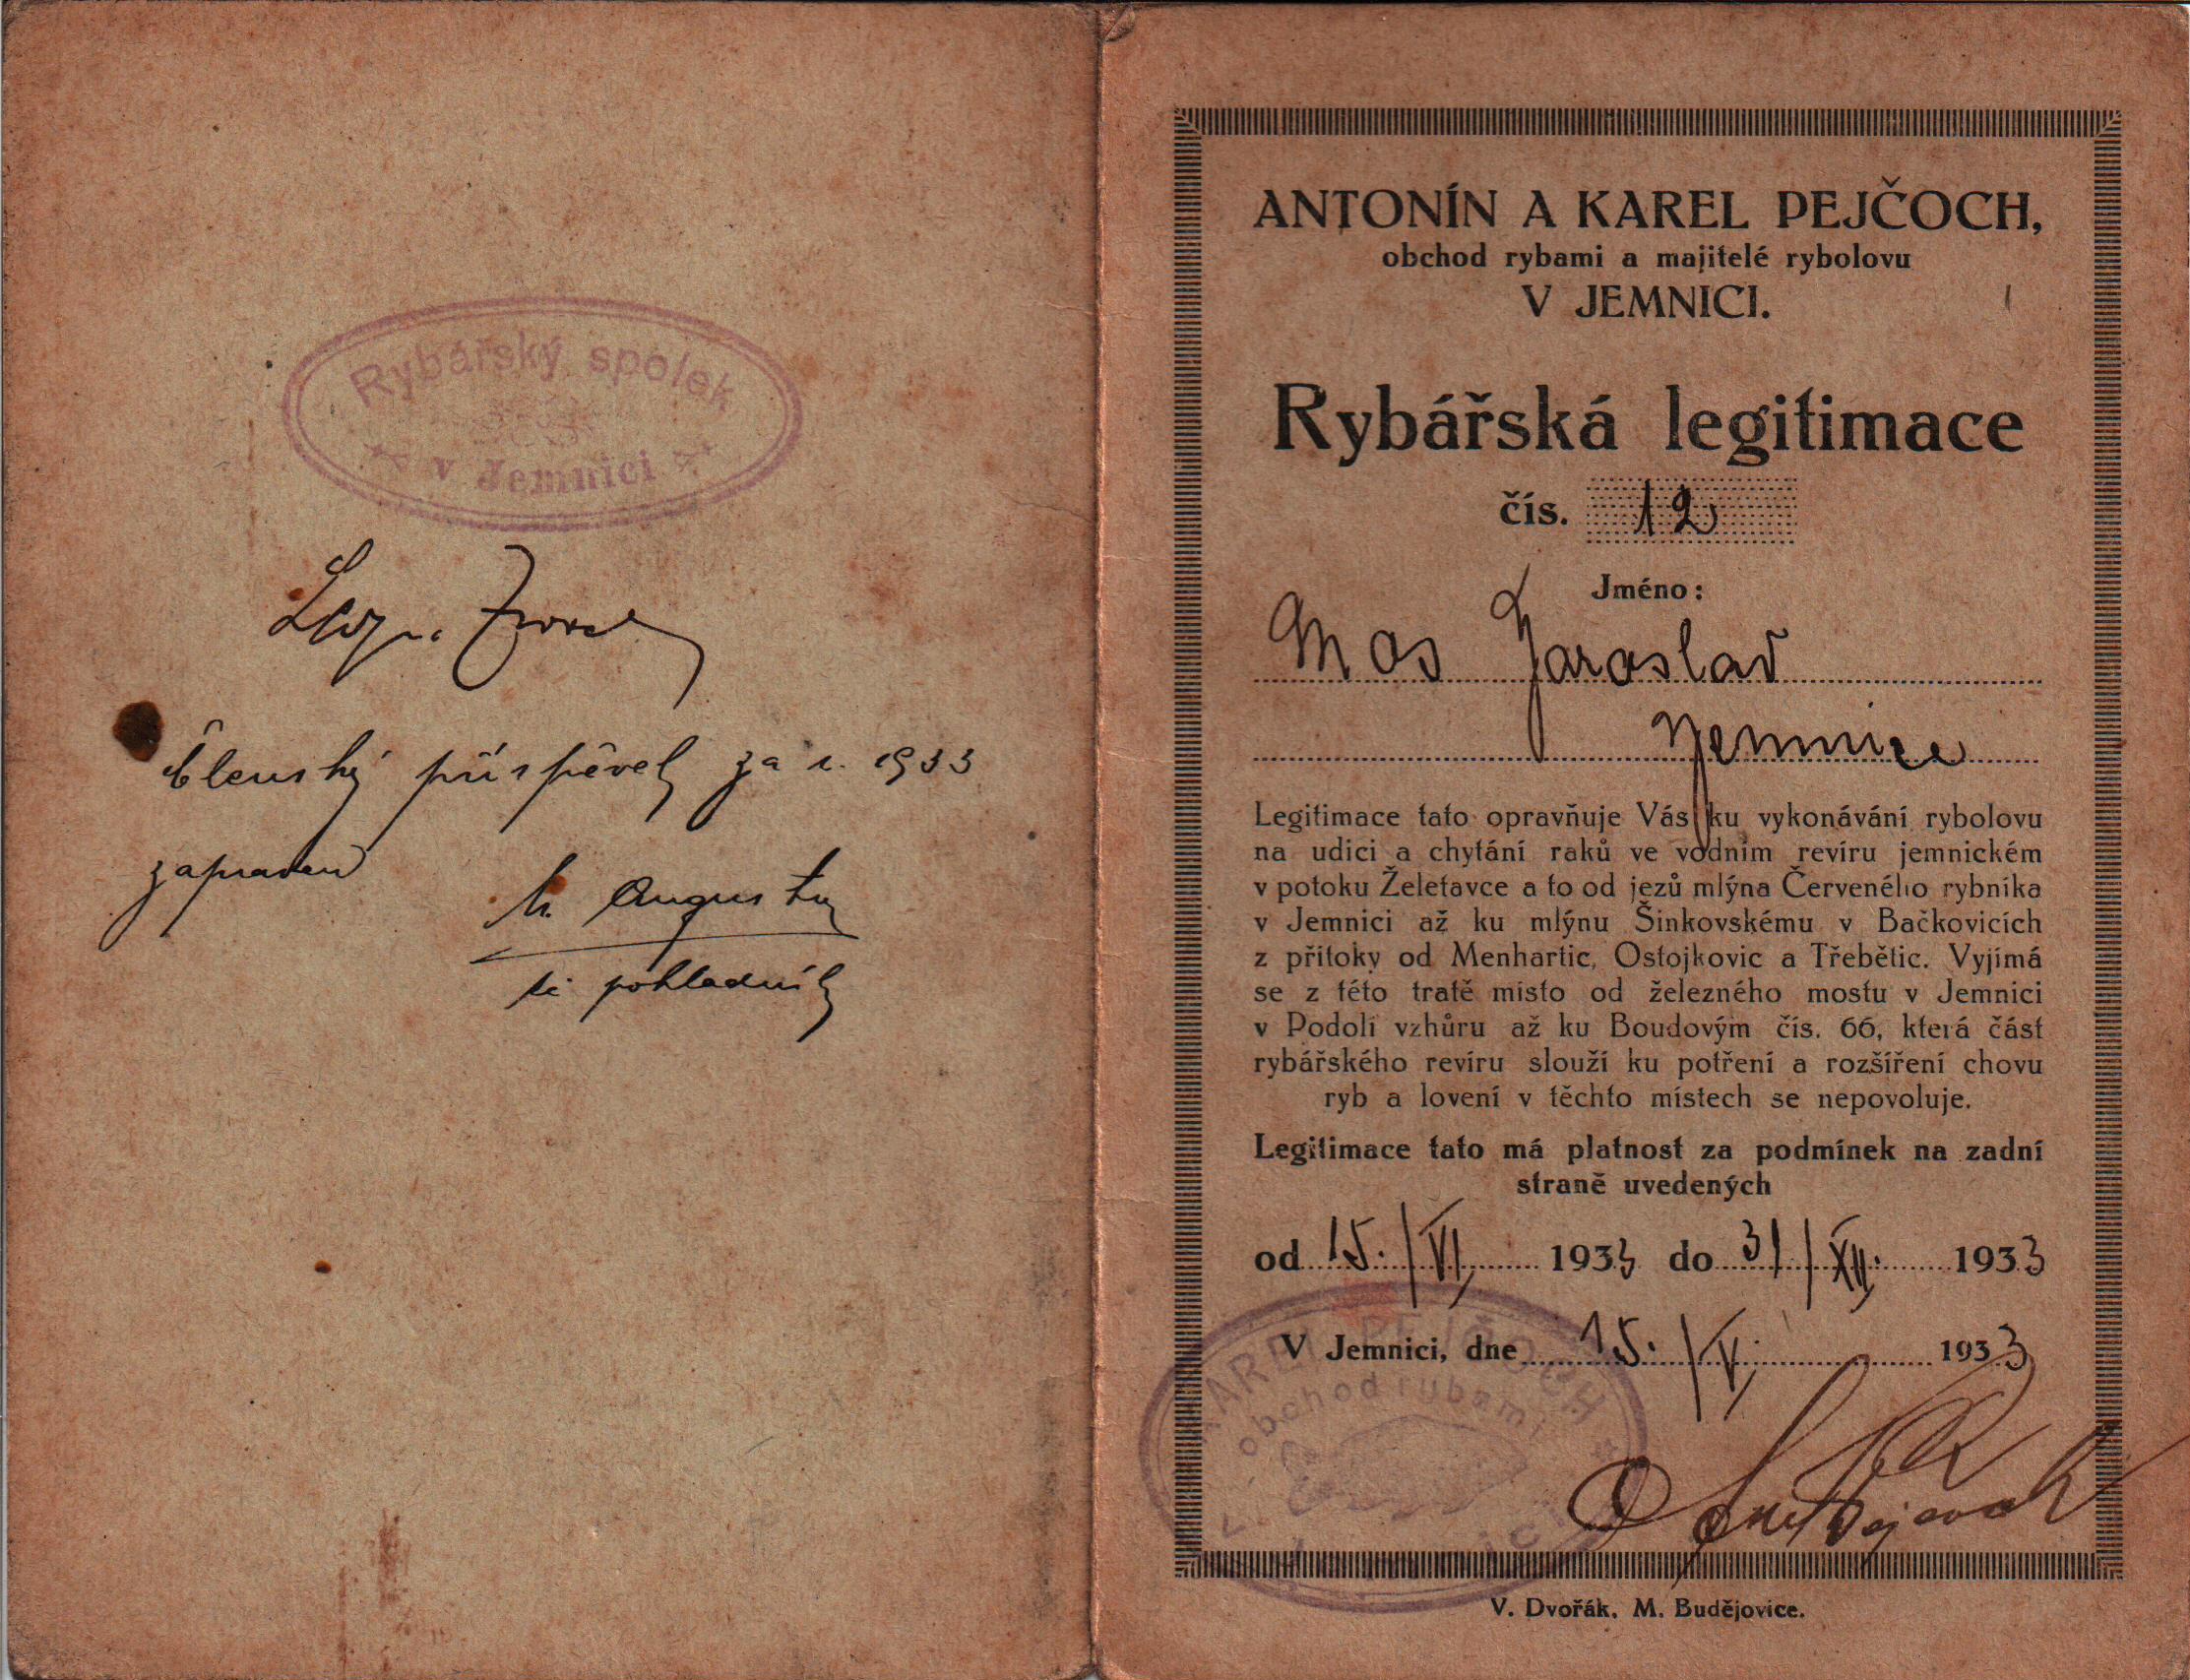 Rybářský spolek
v Jemnici
Členský příspěvek za r. 1933
zapraven
Augustin
t. č. pokladník
ANTONÍN A KAREL PEJČOCH,
obchod rybami a majitelé rybolovu
V JEMNICI.
Rybářská legitimace
čís. 12
Jméno:
Mas Jaroslav
Jemnice
Legitimace tato opravňuje Vás ku vykonávání rybolovu
na udici a chytání raků ve vodním revíru jemnickém
v potoku Želetavce a to od jezů mlýna Červeného rybníka
v Jemnici až ku mlýnu Šinkovskému v Bačkovicích
z přítoky od Menhartic, Ostojkovic a Třebětic. Vyjímá
se z této tratě místo od železného mostu v Jemnici
v Podolí vzhůru až ku Boudovým čís. 66, která část
rybářského revíru slouží ku potření a rozšíření chovu
ryb a lovení v těchto místech se nepovoluje.
Legitimace tato má platnost za podmínek na zadní
straně uvedených
od 15./VI. 1933 do 31/XII. 1933
V Jemnici, dne 15./V. 1933
KAREL PEJČOCH
obchod rybami
V. Dvořák, M. Budějovice.